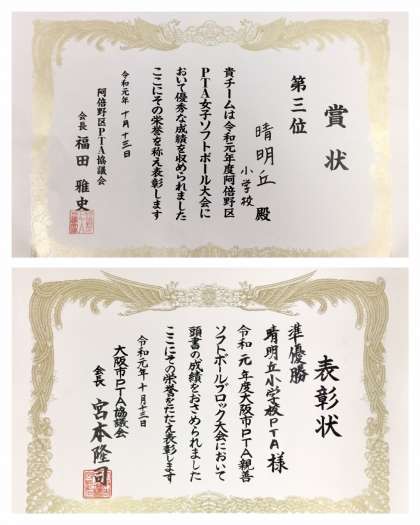 賞状
第三位
晴明丘小学校 殿
貴チームは令和元年度阿倍野区
PTA女子ソフトボール大会に
おいて優秀な成績を収められました
ここにその栄誉を称え表彰します
令和元年十月十三日
阿倍野区PTA協議会
会長 福田雅史
表彰状
準優勝
晴明丘小学校PTA様
令和元年度大阪市PTA親善
ソフトボールブロック大会において
頭書の成績をおさめられました
ここにその栄誉をたたえ表彰します
令和元年十月十三日
大阪市PTA協議会
会長 宮本隆司